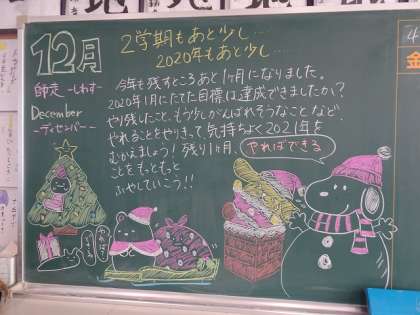 12月
師走 -しわす-
December
-ディセンバー-
2学期もあと少し…
2020年もあと少し…
今年も残すところあと1ヶ月になりました。
2020年1月にたてた目標は達成できましたか?
やり残したこと、もう少しがんばれそうなことなど、
やれることをやりきって気持ちよく2021年を
むかえましょう!残り1ヶ月、やればできる
ことをもっともっと
ふやしていこう!!
やればできる
金